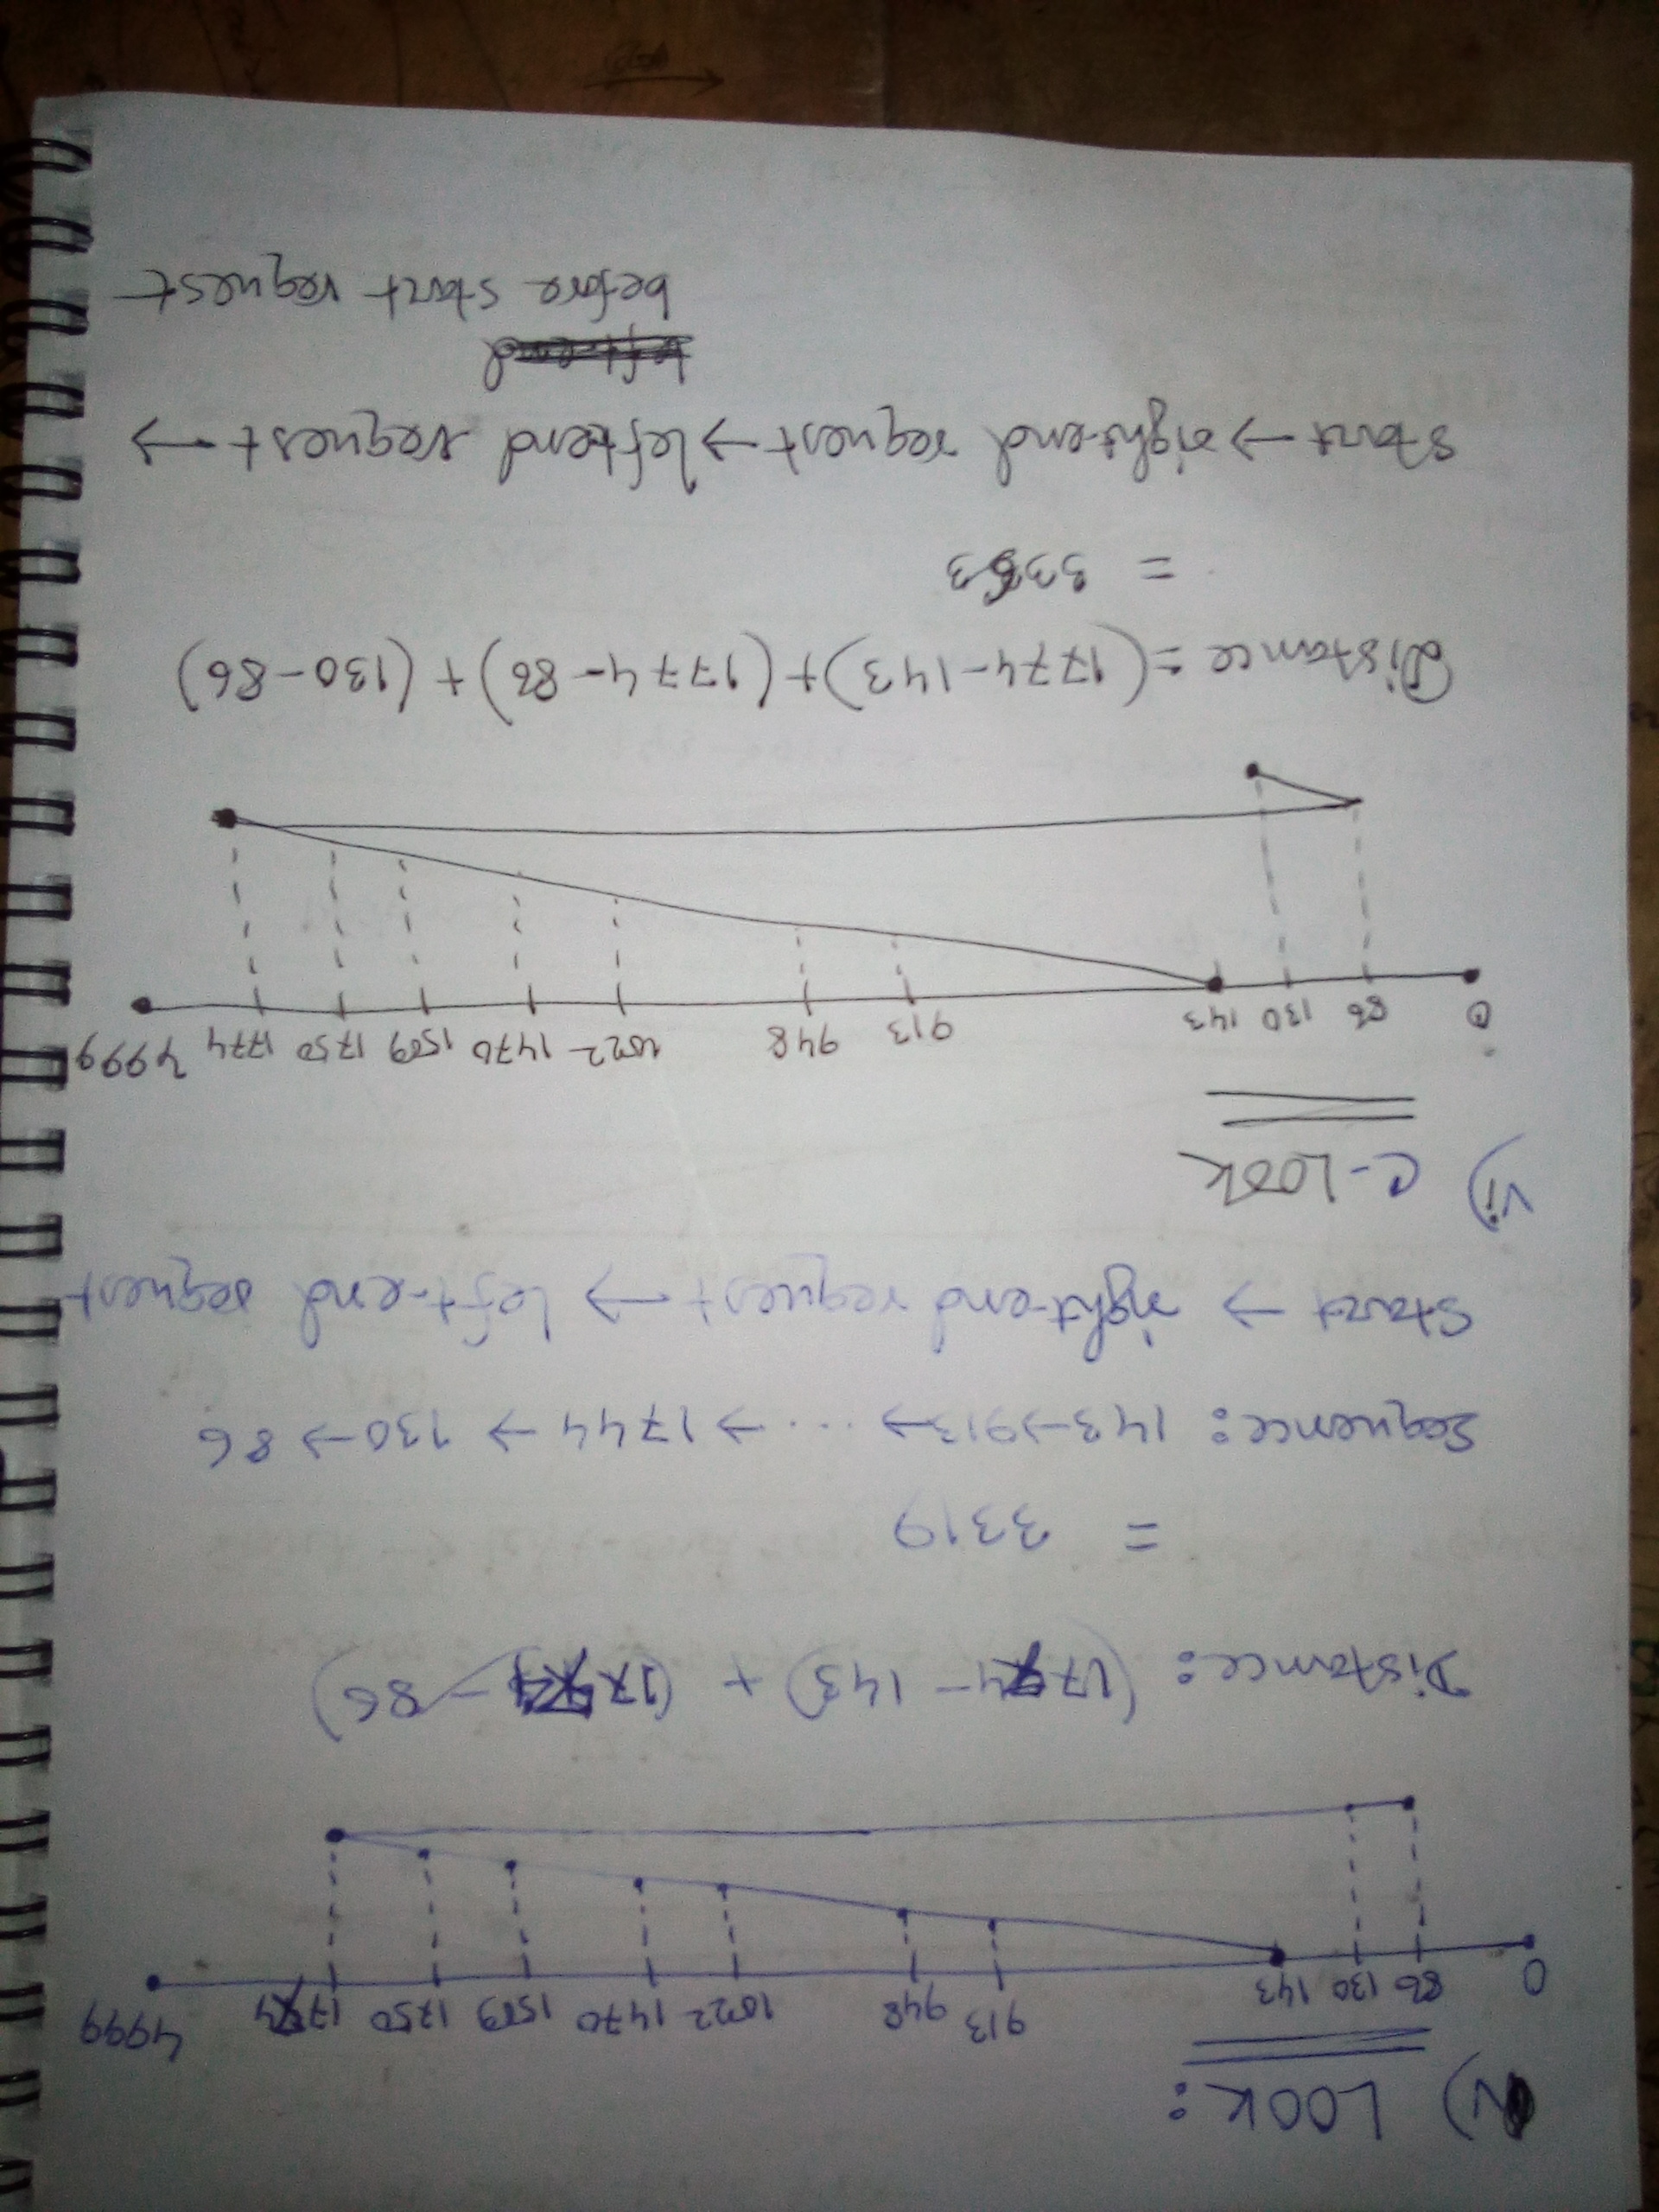 V) LOOK:
0 86 130 143 913 948 1022 1470 1509 1750 1774 4999
Distance: (1774 - 143) + (1774 - 86)
= 3319
Sequence: 143→913→ ... →1744→ 130→86
Start → right-end request → left-end request
vi) C-LOOK
0 86 130 143 913 948 1022 1470 1509 1750 1774 4999
Distance = (1774-143)+(1774-86)+(130-86)
= 3363
Start → right-end request → left end request →
left-end
before start request